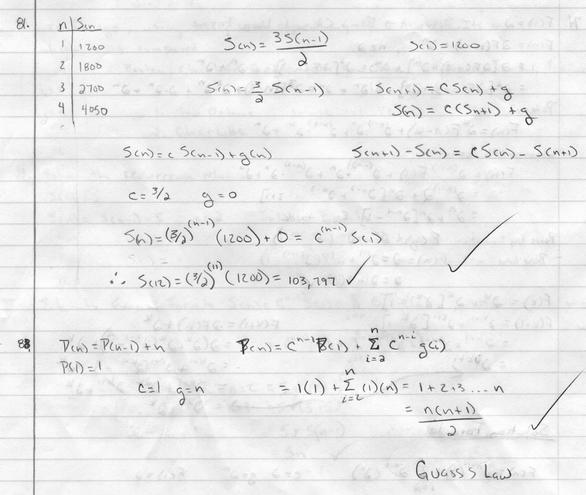 81.
n | S(n)
1 | 1200
2 | 1800
3 | 2700
4 | 4050
S(n) = 3S(n-1) / 2
S(1) = 1200
S(n) = 3/2 S(n-1)
S(n+1) = CS(n) + g
S(n) = C(Sn+1) + g
S(n) = c S(n-1) + g(n)
S(n+1) - S(n) = CS(n) - S(n+1)
c = 3/2   g = 0
S(n) = (3/2)^(n-1) (1200) + 0 = c^(n-1) S(1)
∴ S(12) = (3/2)^(11) (1200) = 103,797 ✓
✓
P(n) = P(n-1) + n
P(1) = 1
P(n) = c^n-1 P(1) + Σ i=2 n c^n-i g(i)
c=1   g=n
= 1(1) + Σ n (1)(n) = 1+2+3...n
= n(n+1) / 2 ✓
Guass's Law